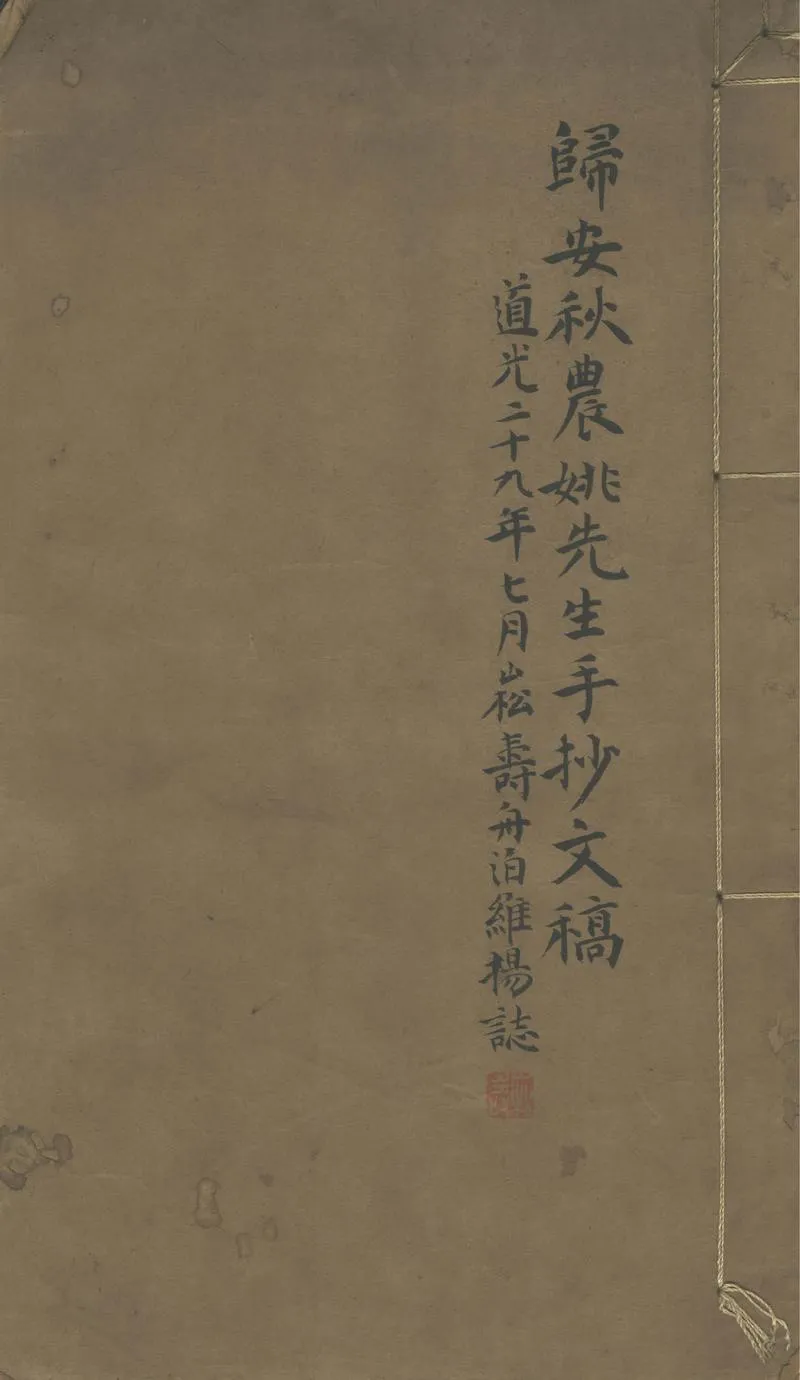 歸安秋農姚先生手抄文稿
道光二十九年七月崧壽舟泊維揚誌